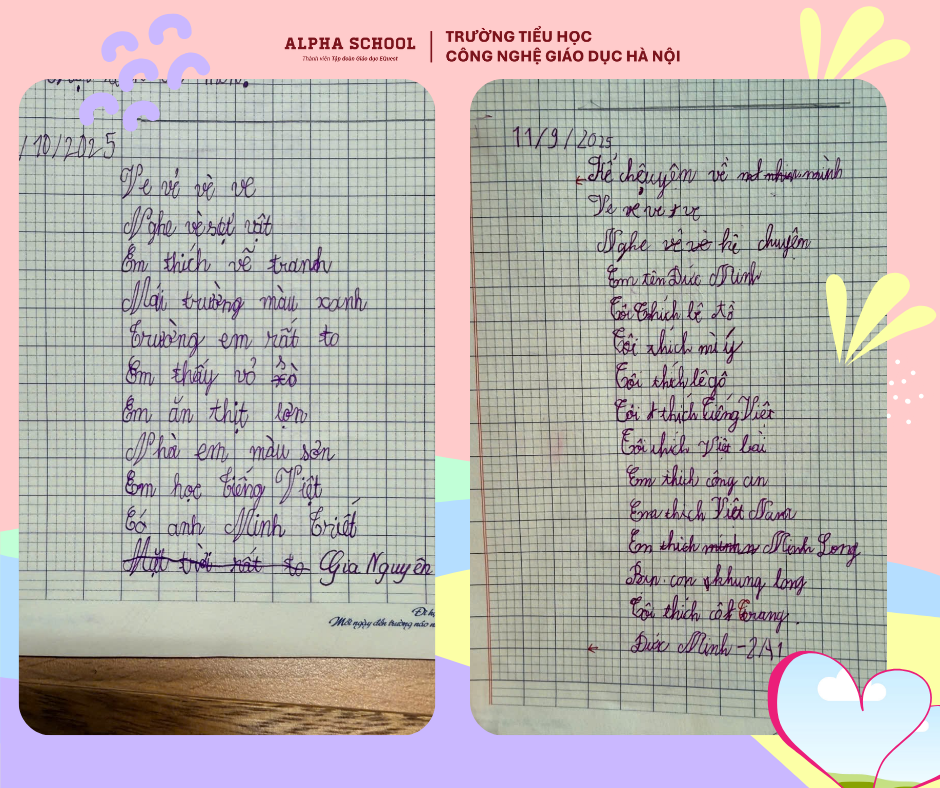 ALPHA SCHOOL
Thành viên Tập đoàn Giáo dục EQuest
TRƯỜNG TIỂU HỌC
CÔNG NGHỆ GIÁO DỤC HÀ NỘI
/10/2025
Ve vẻ vè ve
Nghe vè sự vật
Em thích vẽ tranh
Mái trường màu xanh
Trường em rất to
Em thấy vỏ sò
Em ăn thịt lợn
Nhà em màu sơn
Em học Tiếng Việt
Có anh Minh Triết
Mặt trời rất to Gia Nguyên
Mỗi ngày đến trường náo n
11/9/2025
Kể chệuyên về mình
Ve vẻ ve ve
Nghe vẻ vè kê chuyện
Em tên Đức Minh
Tôi thích bê đồ
Tôi thích mì ý
Tôi thích lêgô
Tôi thích Tiếng Việt
Tôi thích Việt bài
Em thích công an
Em thích Việt Nam
Em thích Minh Long
Bịn con khung long
Tôi thích cô Trang.
Đức Minh - 2A1